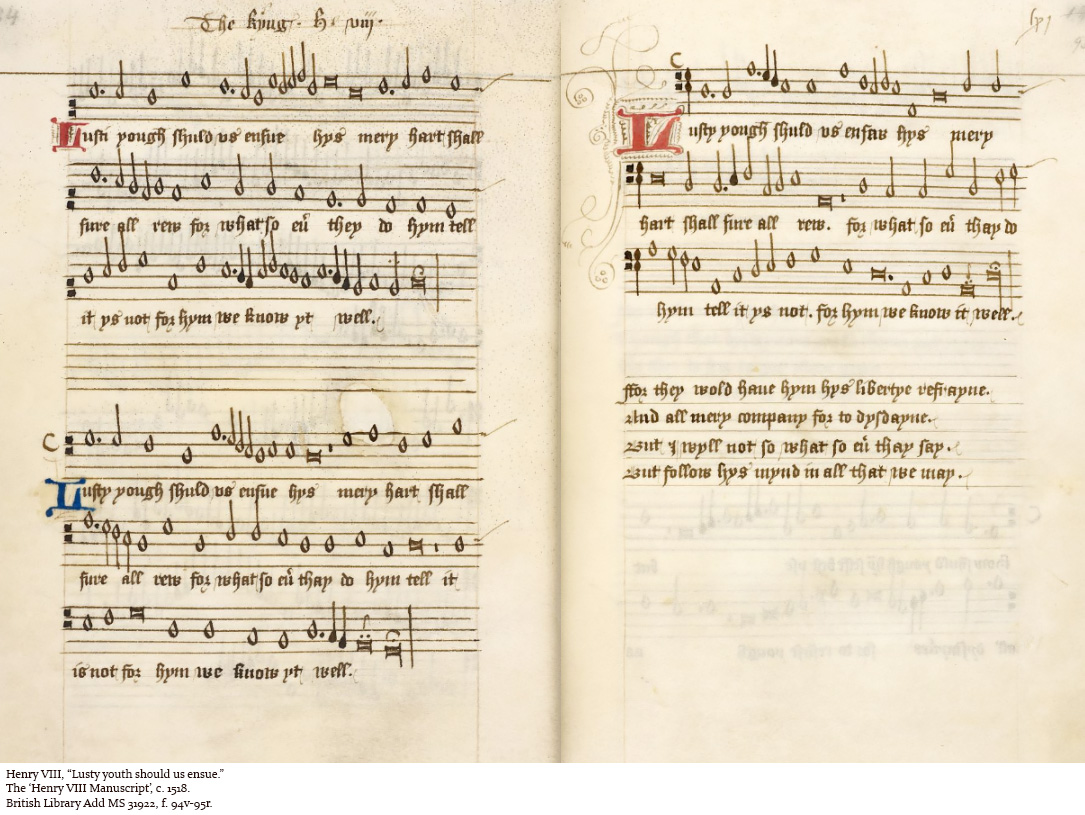 The kyng . h . viij .
Lusti yough shuld vs ensue hys mery hart shall
sure all rew for what so eu̅ they do hym tell
it ys not for hym we know yt well.
C
Lusty yough shuld vs ensue hys mery hart shall
sure all rew for what so eu̅ thay do hym tell it
is not for hym we know yt well.
C
Lusty yough shuld vs ensav hys mery
hart shall sure all rew. for what so eu̅ thay do
hym tell it ys not. for hym we know it well.
ffor they wold haue hym hys libertye refrayne.
And all mery company for to dysdayne.
But I wyll not so what so eu̅ thay say.
But follow hys mynd in all that we may.
Henry VIII, “Lusty youth should us ensue.”
The ‘Henry VIII Manuscript’, c. 1518.
British Library Add MS 31922, f. 94v-95r.